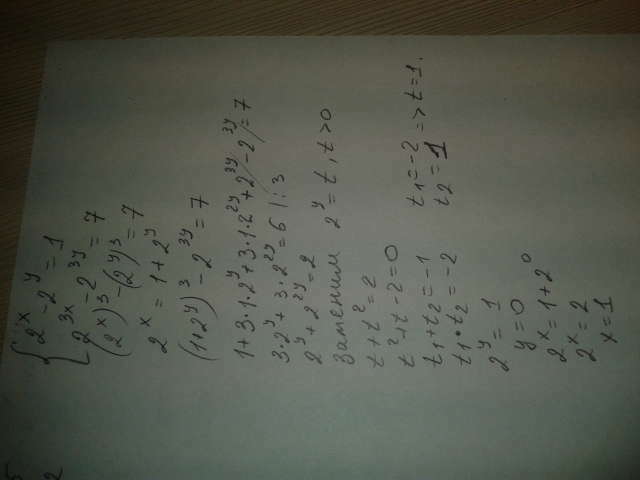 { 2^x - 2^y = 1
2^{3x} - 2^{3y} = 7
(2^x)^3 - (2^y)^3 = 7
2^x = 1 + 2^y
(1+2^y)^3 - 2^{3y} = 7
1 + 3·1·2^y + 3·1·2^{2y} + 2^{3y} - 2^{3y} = 7
3·2^y + 3·2^{2y} = 6 | : 3
2^y + 2^{2y} = 2
Заменим 2^y = t, t > 0
t + t^2 = 2
t^2 + t - 2 = 0
t₁ + t₂ = -1 t₁ = -2
t₁ · t₂ = -2 t₂ = 1 => t = 1.
2^y = 1
y = 0
2^x = 1 + 2^0
2^x = 2
x = 1